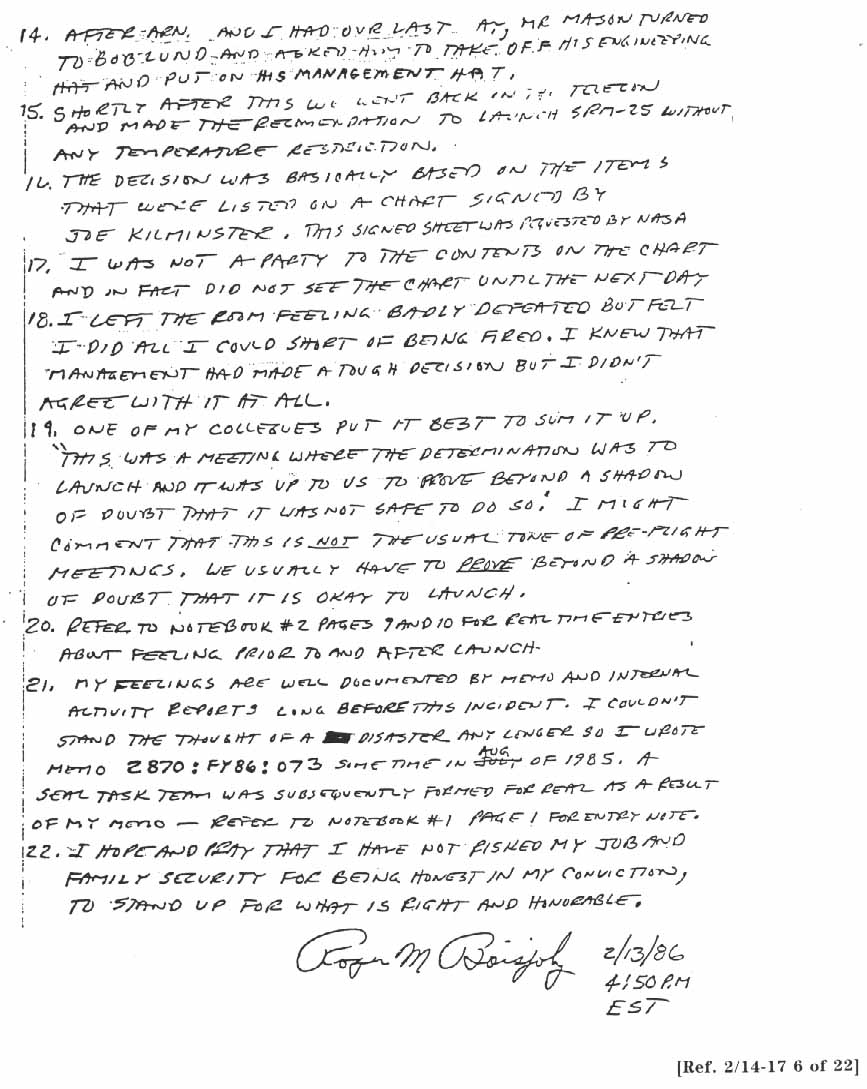 14. AFTER ARN. AND I HAD OUR LAST AY, MR MASON TURNED
TO BOB LUND AND ASKED HIM TO TAKE OFF HIS ENGINEERING
HAT AND PUT ON HIS MANAGEMENT HAT.
15. SHORTLY AFTER THIS WE WENT BACK IN TELECON
AND MADE THE RECMENDATION TO LAUNCH SRM-25 WITHOUT
ANY TEMPERATURE RESTRICTION.
16. THE DECISION WAS BASICALLY BASED ON THE ITEMS
THAT WERE LISTED ON A CHART SIGNED BY
JOE KILMINSTER. THIS SIGNED SHEET WAS REQUESTED BY NASA
17. I WAS NOT A PARTY TO THE CONTENTS ON THE CHART
AND IN FACT DID NOT SEE THE CHART UNTIL THE NEXT DAY
18. I LEFT THE ROOM FEELING BADLY DEFEATED BUT FELT
I DID ALL I COULD SHORT OF BEING FIRED. I KNEW THAT
MANAGEMENT HAD MADE A TOUGH DECISION BUT I DIDN'T
AGREE WITH IT AT ALL.
19. ONE OF MY COLLEGUES PUT IT BEST TO SUM IT UP.
"THIS WAS A MEETING WHERE THE DETERMINATION WAS TO
LAUNCH AND IT WAS UP TO US TO PROVE BEYOND A SHADOW
OF DOUBT THAT IT WAS NOT SAFE TO DO SO." I MIGHT
COMMENT THAT THIS IS NOT THE USUAL TONE OF PRE-FLIGHT
MEETINGS. WE USUALLY HAVE TO PROVE BEYOND A SHADOW
OF DOUBT THAT IT IS OKAY TO LAUNCH.
20. REFER TO NOTEBOOK #2 PAGES 9 AND 10 FOR REAL TIME ENTRIES
ABOUT FEELING PRIOR TO AND AFTER LAUNCH.
21. MY FEELINGS ARE WELL DOCUMENTED BY MEMO AND INTERNAL
ACTIVITY REPORTS LONG BEFORE THIS INCIDENT. I COULDN'T
STAND THE THOUGHT OF A DISASTER ANY LONGER SO I WROTE
MEMO 2870:FY86:073 SOMETIME IN AUG OF 1985. A
SEAL TASK TEAM WAS SUBSEQUENTLY FORMED FOR REAL AS A RESULT
OF MY MEMO — REFER TO NOTEBOOK #1 PAGE 1 FOR ENTRY NOTE.
22. I HOPE AND PRAY THAT I HAVE NOT RISKED MY JOB AND
FAMILY SECURITY FOR BEING HONEST IN MY CONVICTION,
TO STAND UP FOR WHAT IS RIGHT AND HONORABLE.
Roger M Boisjoly 2/13/86
4:50 P.M
EST
[Ref. 2/14-17 6 of 22]